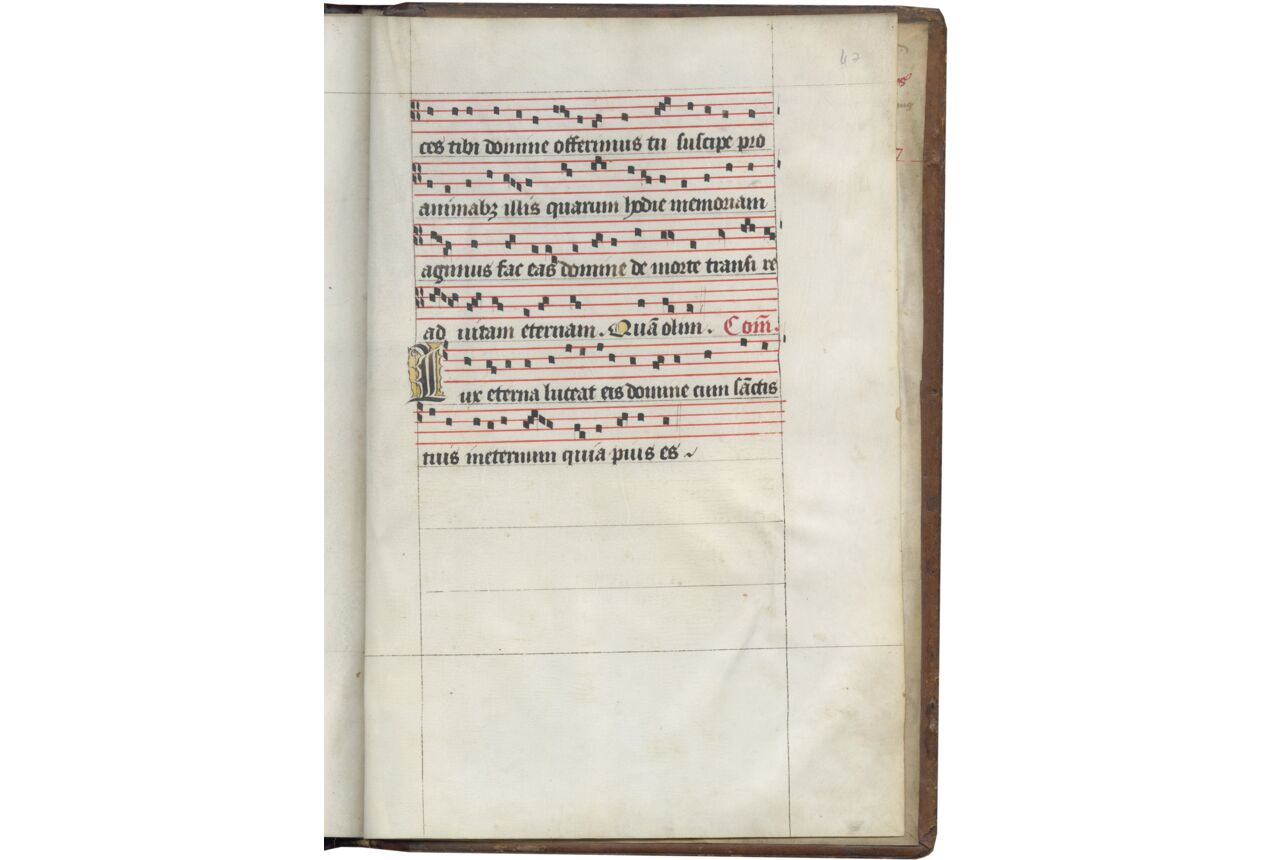 47
ces tibi domine offerimus tu suscipe pro
animabꝫ illis quarum hodie memoriam
agimus fac eas domine de morte transi re
ad uitam eternam. Quā olim. Com̄.
Lux eterna luceat eis domine cum sāctis
tuis ineternum quia pius es